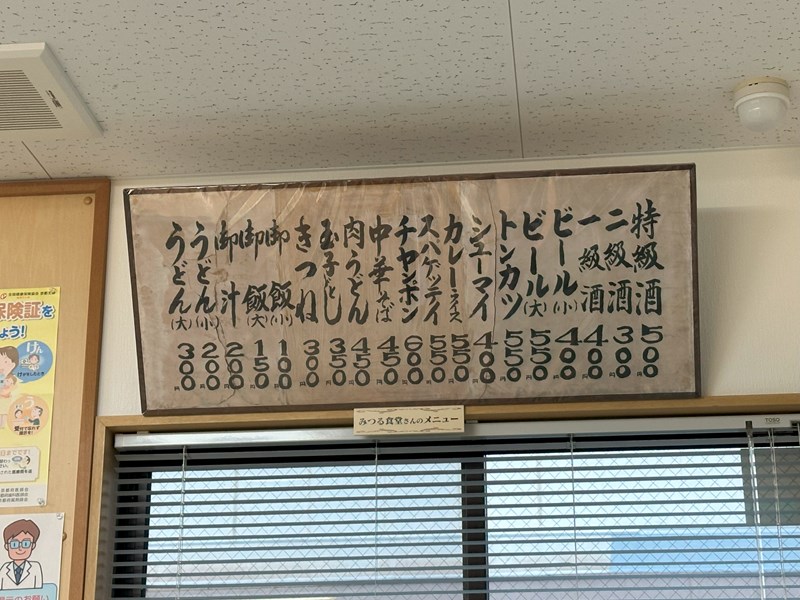 特級酒 500円
二級酒 300円
一級酒 400円
ビール(小) 400円
ビール(大) 550円
トンカツ 550円
シューマイ 400円
カレーライス 550円
スパゲッテイ 550円
チャンポン 600円
中華そば 450円
肉うどん 450円
玉子とじ 350円
きつね 300円
御飯(小) 100円
御飯(大) 150円
御汁 200円
うどん(小) 200円
うどん(大) 300円
みつる食堂さんのメニュー
保険証を
よう!
TOSO